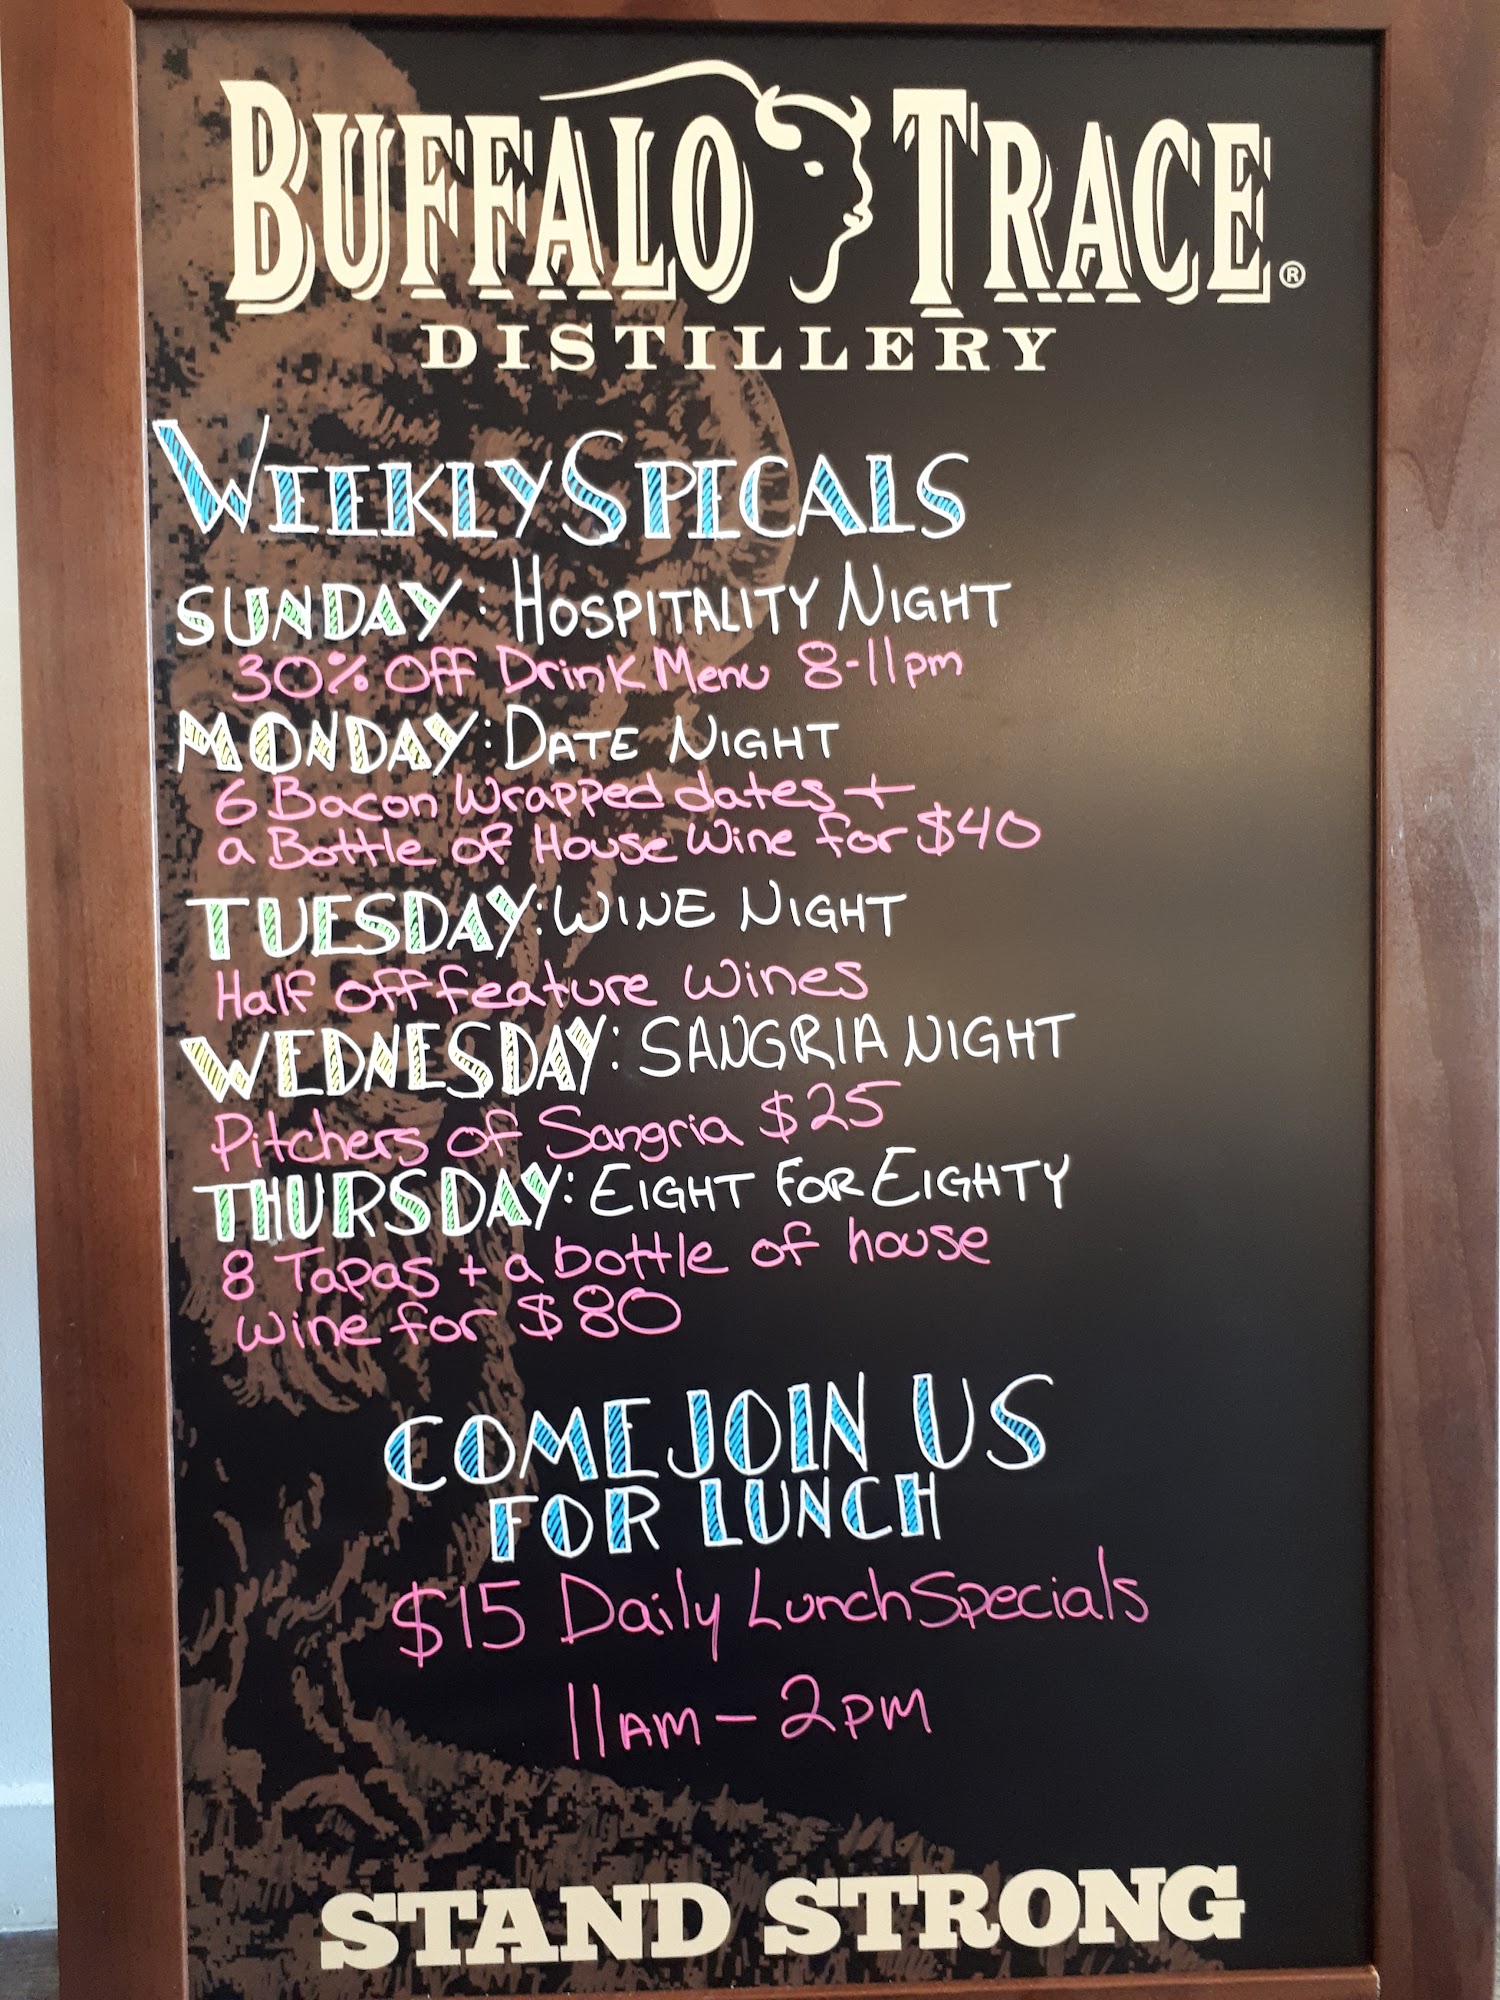 BUFFALO TRACE®
DISTILLERY
WEEKLY SPECALS
SUNDAY: HOSPITALITY NIGHT
30% Off Drink Menu 8-11pm
MONDAY: DATE NIGHT
6 Bacon Wrapped dates +
a Bottle of House Wine for $40
TUESDAY: WINE NIGHT
Half off feature wines
WEDNESDAY: SANGRIA NIGHT
Pitchers of Sangria $25
THURSDAY: EIGHT FOR EIGHTY
8 Tapas + a bottle of house
wine for $80
COME JOIN US
FOR LUNCH
$15 Daily Lunch Specials
11AM - 2PM
STAND STRONG